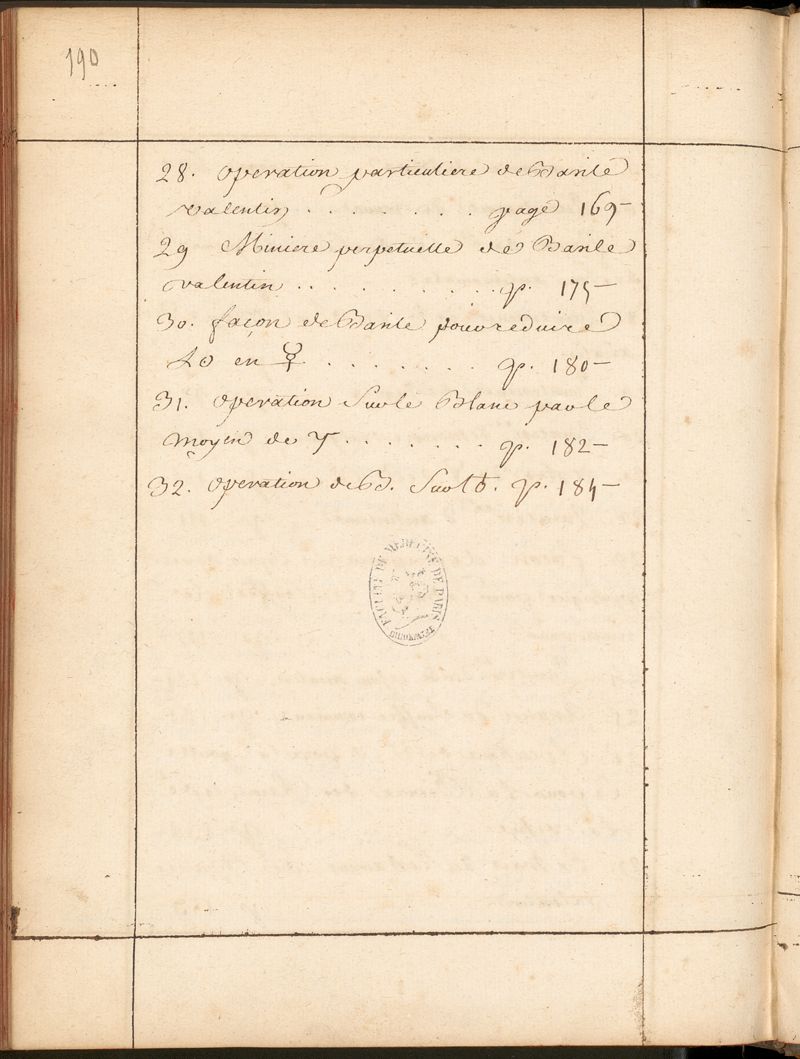 190
28. operation particuliere de Basile
valentin . . . . . . . page 169
29 Miniere perpetuelle de Basile
valentin . . . . . . . . . p. 175
30. façon de Basile pour reduire
en ☿ . . . . . . . p. 180
31. operation Sur le Blanc par le
moyen de . . . . . . . p. 182
32. operation de B. Sur p. 185
FACULTÉ DE MÉDECINE DE PARIS